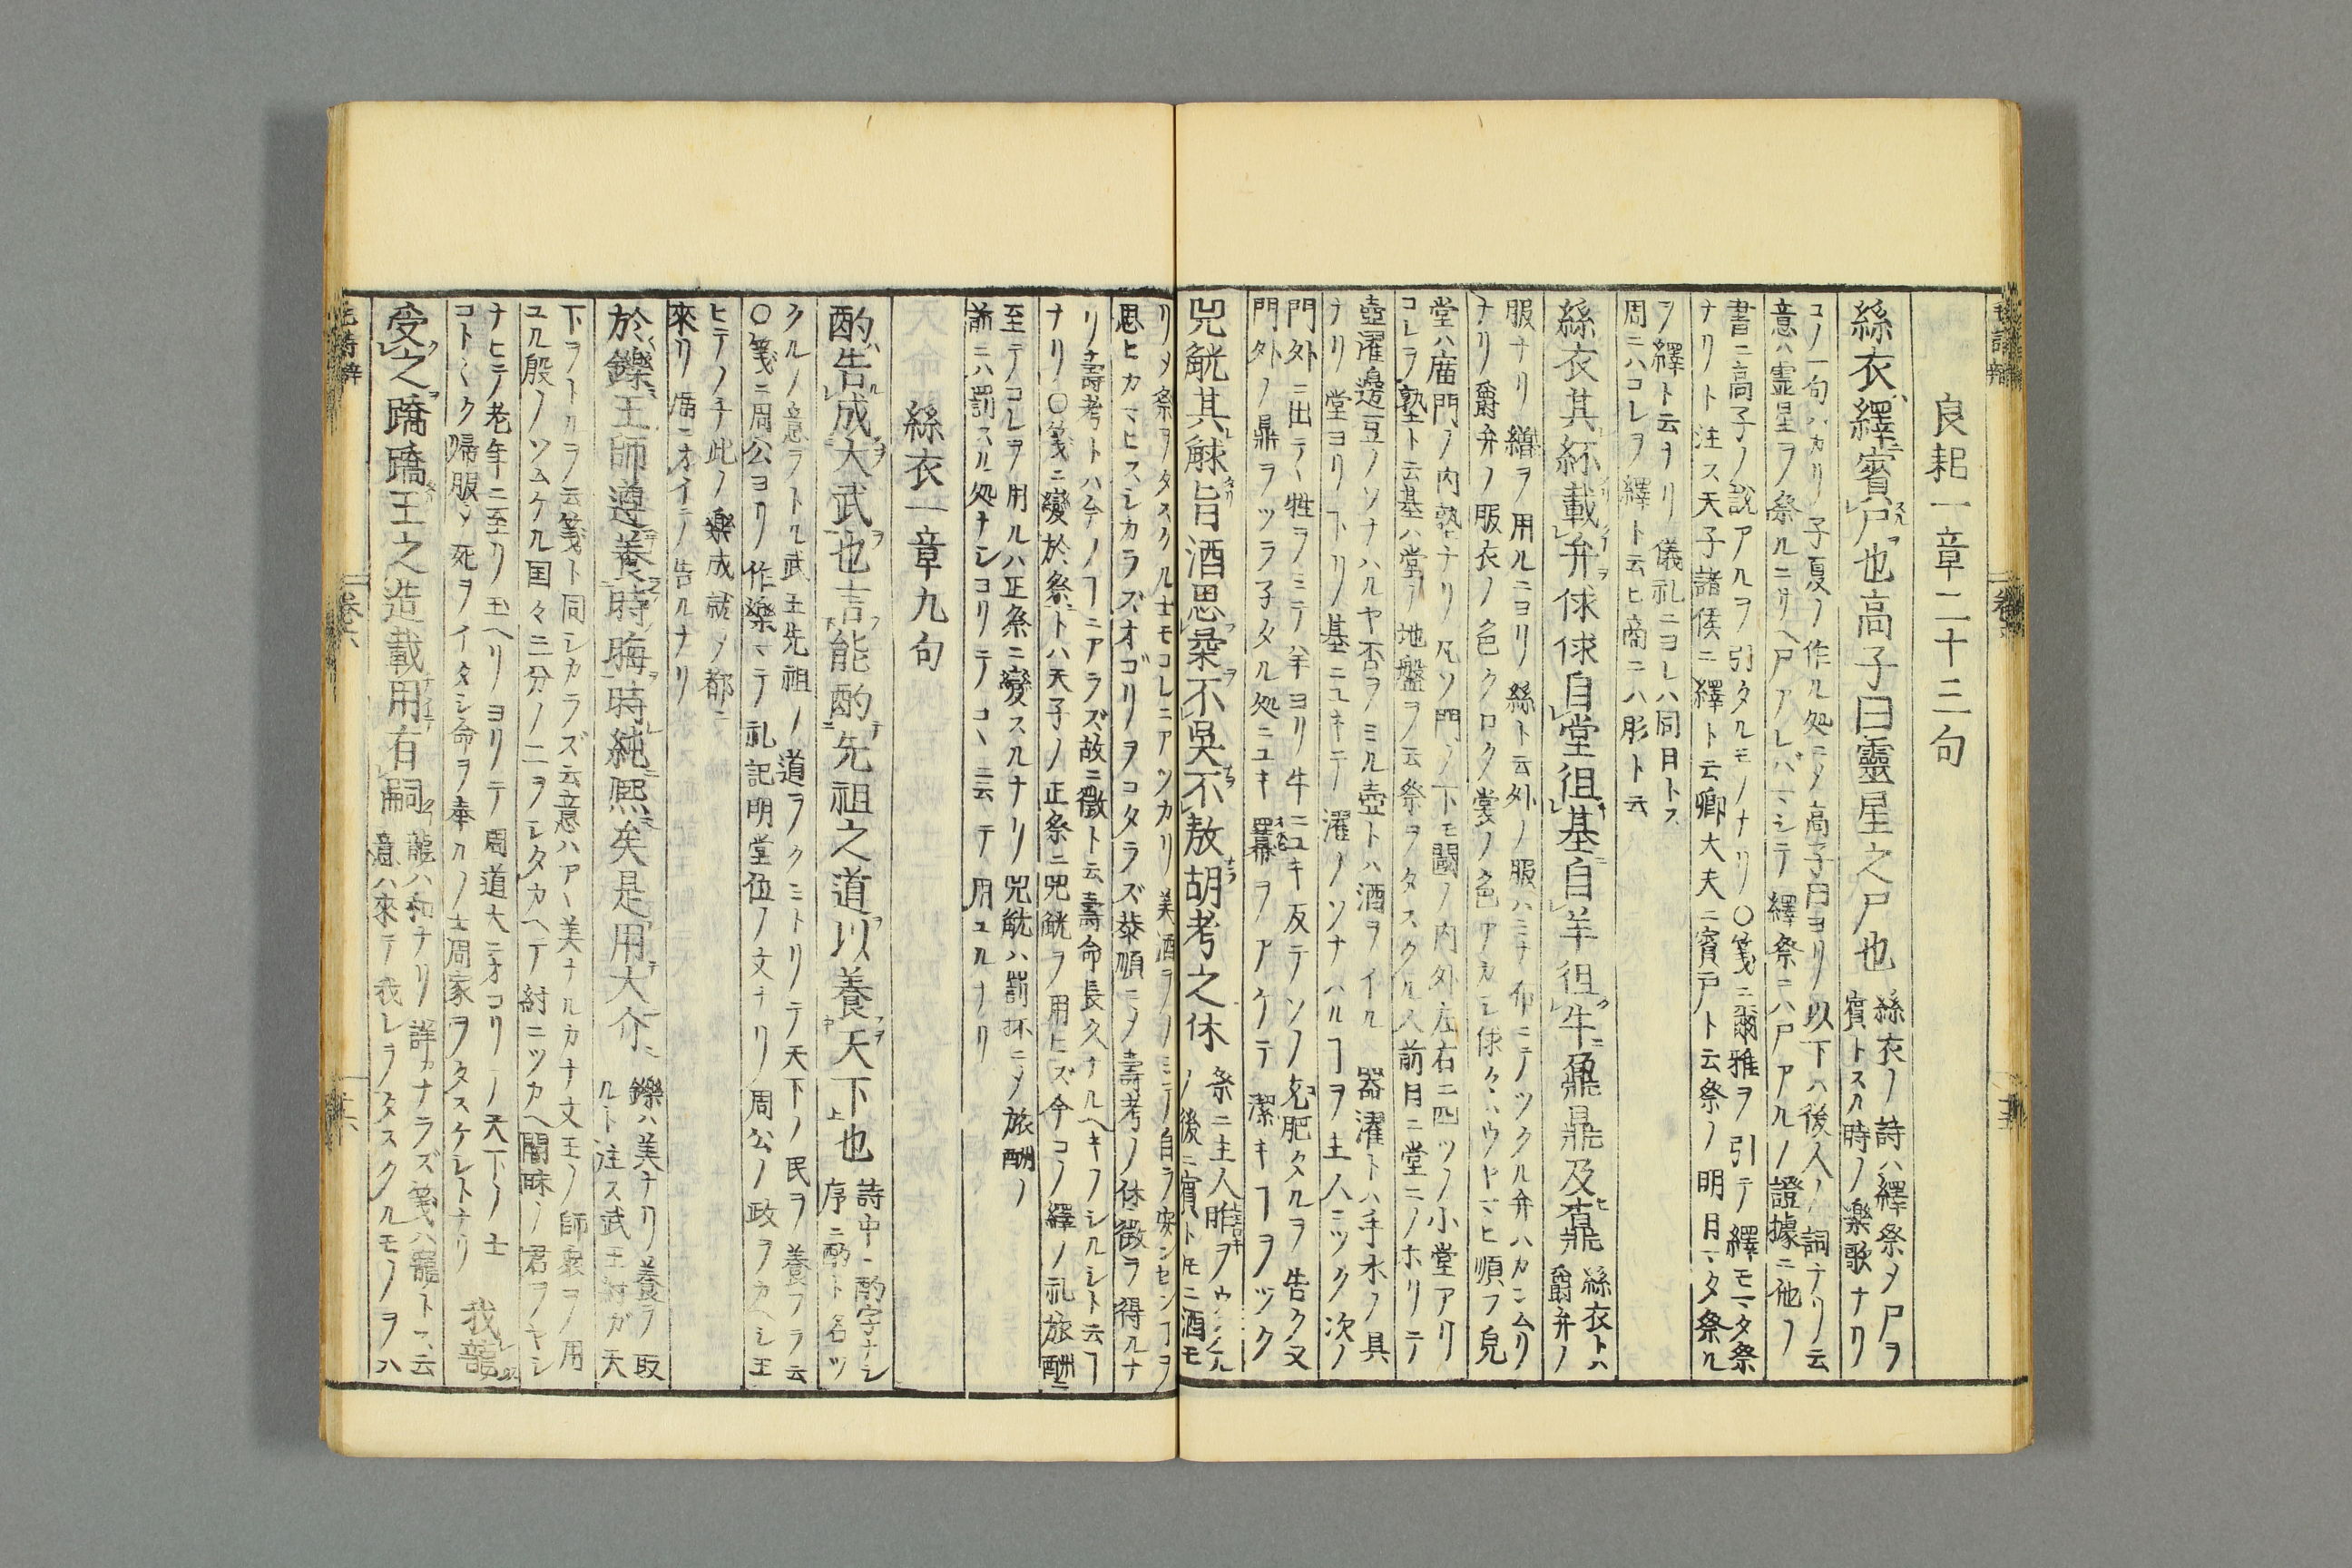 良耜一章二十三句
絲衣繹賓尸也高子曰靈星之尸也
絲衣ノ詩ハ繹祭メ尸ヲ
賓トスル時ノ樂歌ナリ
コノ一句ハカリ子夏ノ作ル処ニメ高子曰ヨリ以下ハ後人ノ詞ナリ云
意ハ霊星ヲ祭ルニ
繹祭ニハ尸アルノ證據ニ他ノ
書ニ高子ノ説アルヲ引タルモノナリ〇箋ニ爾雅ヲ引テ繹モマタ祭
ナリト注ス天子諸侯ニ繹ト云卿大夫ニ賓尸ト云祭ノ明日マタ祭ル
ヲ繹ト云ヲリ儀礼ニヨレハ同日トス
周ニハコレヲ繹ト云ヒ商ニハ肜ト云
絲衣其紑載弁俅俅自堂徂基自羊徂牛鼐鼎及鼒
絲衣トハ
爵弁ノ
服ナリ繒ヲ用ルニヨリ絲ト云外ノ服ハミナ布ニテツクル弁ハカンムリ
ナリ爵弁ノ服衣ノ色クロク裳ノ色アカシ俅々ハウヤマヒ順フ皃
堂ハ廟門ノ内塾ナリ凡ソ門ノ下モ闔ノ内外左右ニ四ツノ小堂アリ
コレヲ塾ト云基ハ堂ノ地盤ヲ云祭ヲタスクル人前日ニ堂ニノホリテ
壺濯籩豆ノソナハルヤ否ヲミル壺トハ酒ヲイル器濯トハ手水ノ具
ナリ堂ヨリ下リノ基ニユキテ濯ノソナハルヿヲ主人ニツク次ノ
門外ニ出テヽ牲ヲミテ羊ヨリ牛ニユキ反テソノ充肥タルヲ告ク又
門外ノ鼎ヲツラ子タル処ニユキ冪ヲアケテ潔キヿヲツク
兕觥其觩旨酒思柔不吳不敖胡考之休
祭ニ主人
ノ後ニ賓トモニ酒モ
リメ祭ヲタスクル士モコレニアツカリ美酒ヲノミテ自ラ安ンセンヿヲ
思ヒカマヒスシカラズオゴリヲコタラズ恭順ニメ壽考ノ休徴ヲ得ルナ
リ壽考トハ年ノヿニアラズ故ニ徴ト云壽命長久ナルヘキノシルシト云ヿ
ナリ〇箋ニ變於祭トハ天子ノ正祭ニ兕觥ヲ用ヒズ今コノ繹ノ礼旅酬ニ
至テコレヲ用ルハ正祭ニ變スルナリ兕觥ハ罰抔ニメ旅酬ノ
前ニハ罰スル処ナシヨリテコヽニ云テ用ユルナリ
絲衣一章九句
酌告成大武也言能酌先祖之道以養天下也
詩中ニ酌字ナシ
序ニ酌ト名ツ
クルノ意ヲトル武王先祖ノ道ヲクミトリテ天下ノ民ヲ養フヲ云
〇箋ニ周公ヨリ作樂マテ礼記明堂位ノ文ナリ周公ノ政ヲカヘシ王
ヒテノチ此ノ樂成就メ都ニ
來リ廟ニオイテ告ルナリ
於鑠王師遵養時晦時純熙矣是用大介
鑠ハ美ナリ養ヲ取
ルト注ス武王紂ガ天
下ヲトルヲ云箋ト同シカラズ云意ハアヽ美ナルカナ文王ノ師衆ヲ用
ユル殷ノソムケル国々三分ノ二ヲシタカヘテ紂ニツカヘ闇昧ノ君ヲヤシ
ナヒテ老年ニ至リ玉ヘリヨリテ周道大ニオコリノ天下ノ士
コトゴトク帰服シ死ヲイタシ命ヲ奉ルノ士周家ヲタスケシトナリ
我龍
受之蹻蹻王之造載用有嗣
龍ハ和ナリ詳カナラズ箋ハ寵トス云
意ハ來テ我レヲタスクルモノヲハ
毛詩辯 卷六